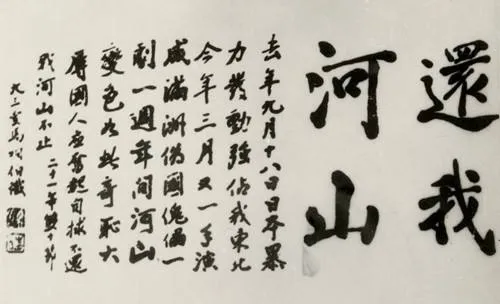 還我
河山
去年九月十八日日本暴
力發動強佔我東北
今年三月又一手演
成滿洲僞國傀儡一
劇一週年間河山
變色如此奇恥大
辱國人應奮起自捄不還
我河山不止 二十一年雙十節
九三叟馬相伯識